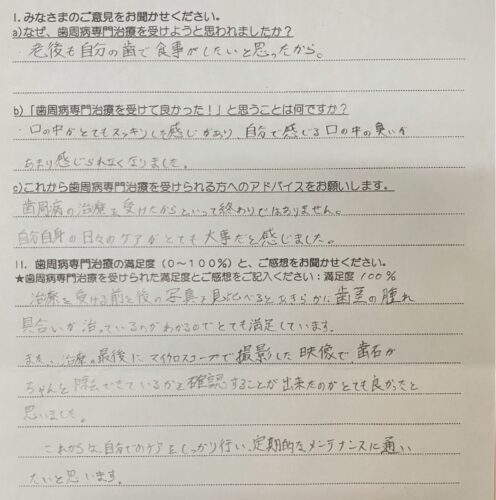 I. みなさまのご意見をお聞かせください。
a)なぜ、歯周病専門治療を受けようと思われましたか？
老後も自分の歯で食事がしたいと思ったから。
b)「歯周病専門治療を受けて良かった！」と思うことは何ですか？
・口の中がとてもスッキリした感じがあり、自分で感じる口の中の臭いが
あまり感じられなくなりました。
c)これから歯周病専門治療を受けられる方へのアドバイスをお願いします。
歯周病の治療を受けたからといって終わりではありません。
自分自身の日々のケアがとても大事だと感じました。
II. 歯周病専門治療の満足度（0～100%）と、ご感想をお聞かせください。
★歯周病専門治療を受けられた満足度とご感想をご記入ください：満足度 100%
治療を受ける前と後の写真を見比べるとあきらかに歯茎の腫れ
具合いが治っているのがわかるのでとても満足しています。
また、治療の最後にマイクロスコープで撮影した映像で、歯石が
ちゃんと除去できているかを確認することが出来たのがとても良かったと
思いました。
これからは、自分でのケアをしっかり行い、定期的なメンテナンスに通い
たいと思います。